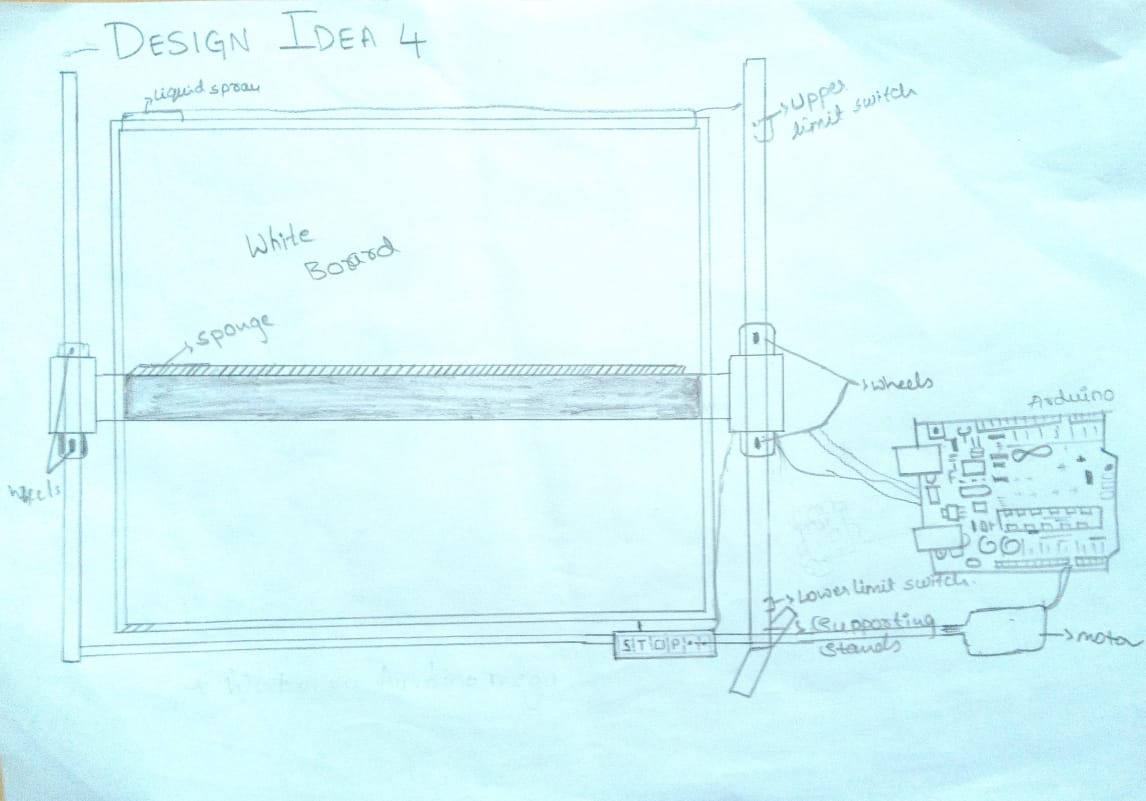 DESIGN IDEA 4
Liquid spray
Upper
limit switch
White
Board
Sponge
wheels
Arduino
wheels
Lower limit switch.
Supporting
stands
STOP
motor